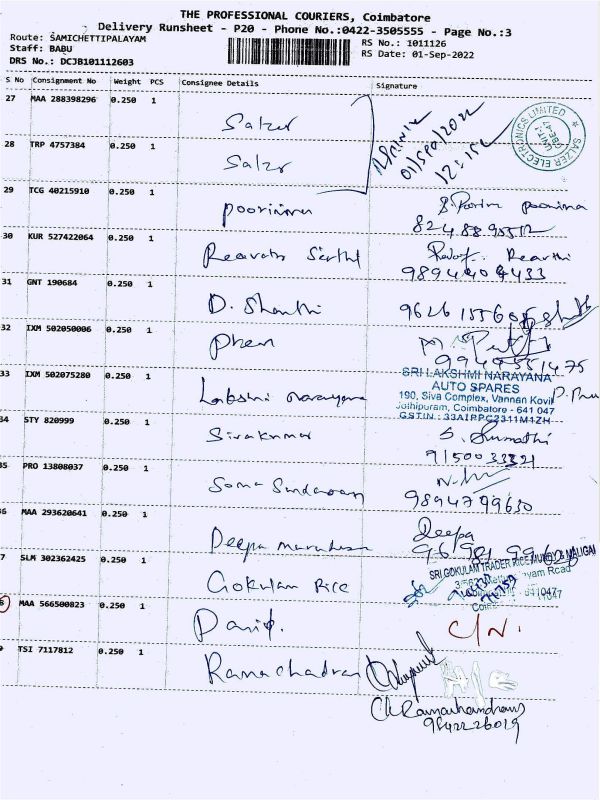 THE PROFESSIONAL COURIERS, Coimbatore
Delivery Runsheet - P20 - Phone No.:0422-3505555 - Page No.:3
Route: SAMICHETTIPALAYAM
Staff: BABU
DRS No.: DCJB101112603
RS No.: 1011126
RS Date: 01-Sep-2022
S No Consignment No Weight PCS Consignee Details Signature
27 MAA 288398296 0.250 1 Salzer
01/Sep/2022
SALZER ELECTRONICS LIMITED
28 TRP 4757384 0.250 1 Salzer
29 TCG 40215910 0.250 1 poornima poornima
30 KUR 527422064 0.250 1
31 GNT 190684 0.250 1 D. Shanthi
32 IXM 502050006 0.250 1
33 IXM 502075280 0.250 1 Lakshmi narayana
SRI LAKSHMI NARAYANA
AUTO SPARES
190, Siva Complex, Vannan Kovil
Jothipuram, Coimbatore - 641 047
GSTIN : 33AIPPC2311M1ZH
34 STY 820999 0.250 1 Sivakumar S. Sumathi
9150033321
35 PRO 13808037 0.250 1 Soma Sundaram
9894799630
36 MAA 293620641 0.250 1 Deepa Deepa
7 SLM 302362425 0.250 1 Gokulam Rice
SRI GOKULAM TRADER RICE MUNDY & MALIGAI
8 MAA 566500823 0.250 1 C/N.
9 TSI 7117812 0.250 1 Ramachadran
Ch Ramachandran
9842226019